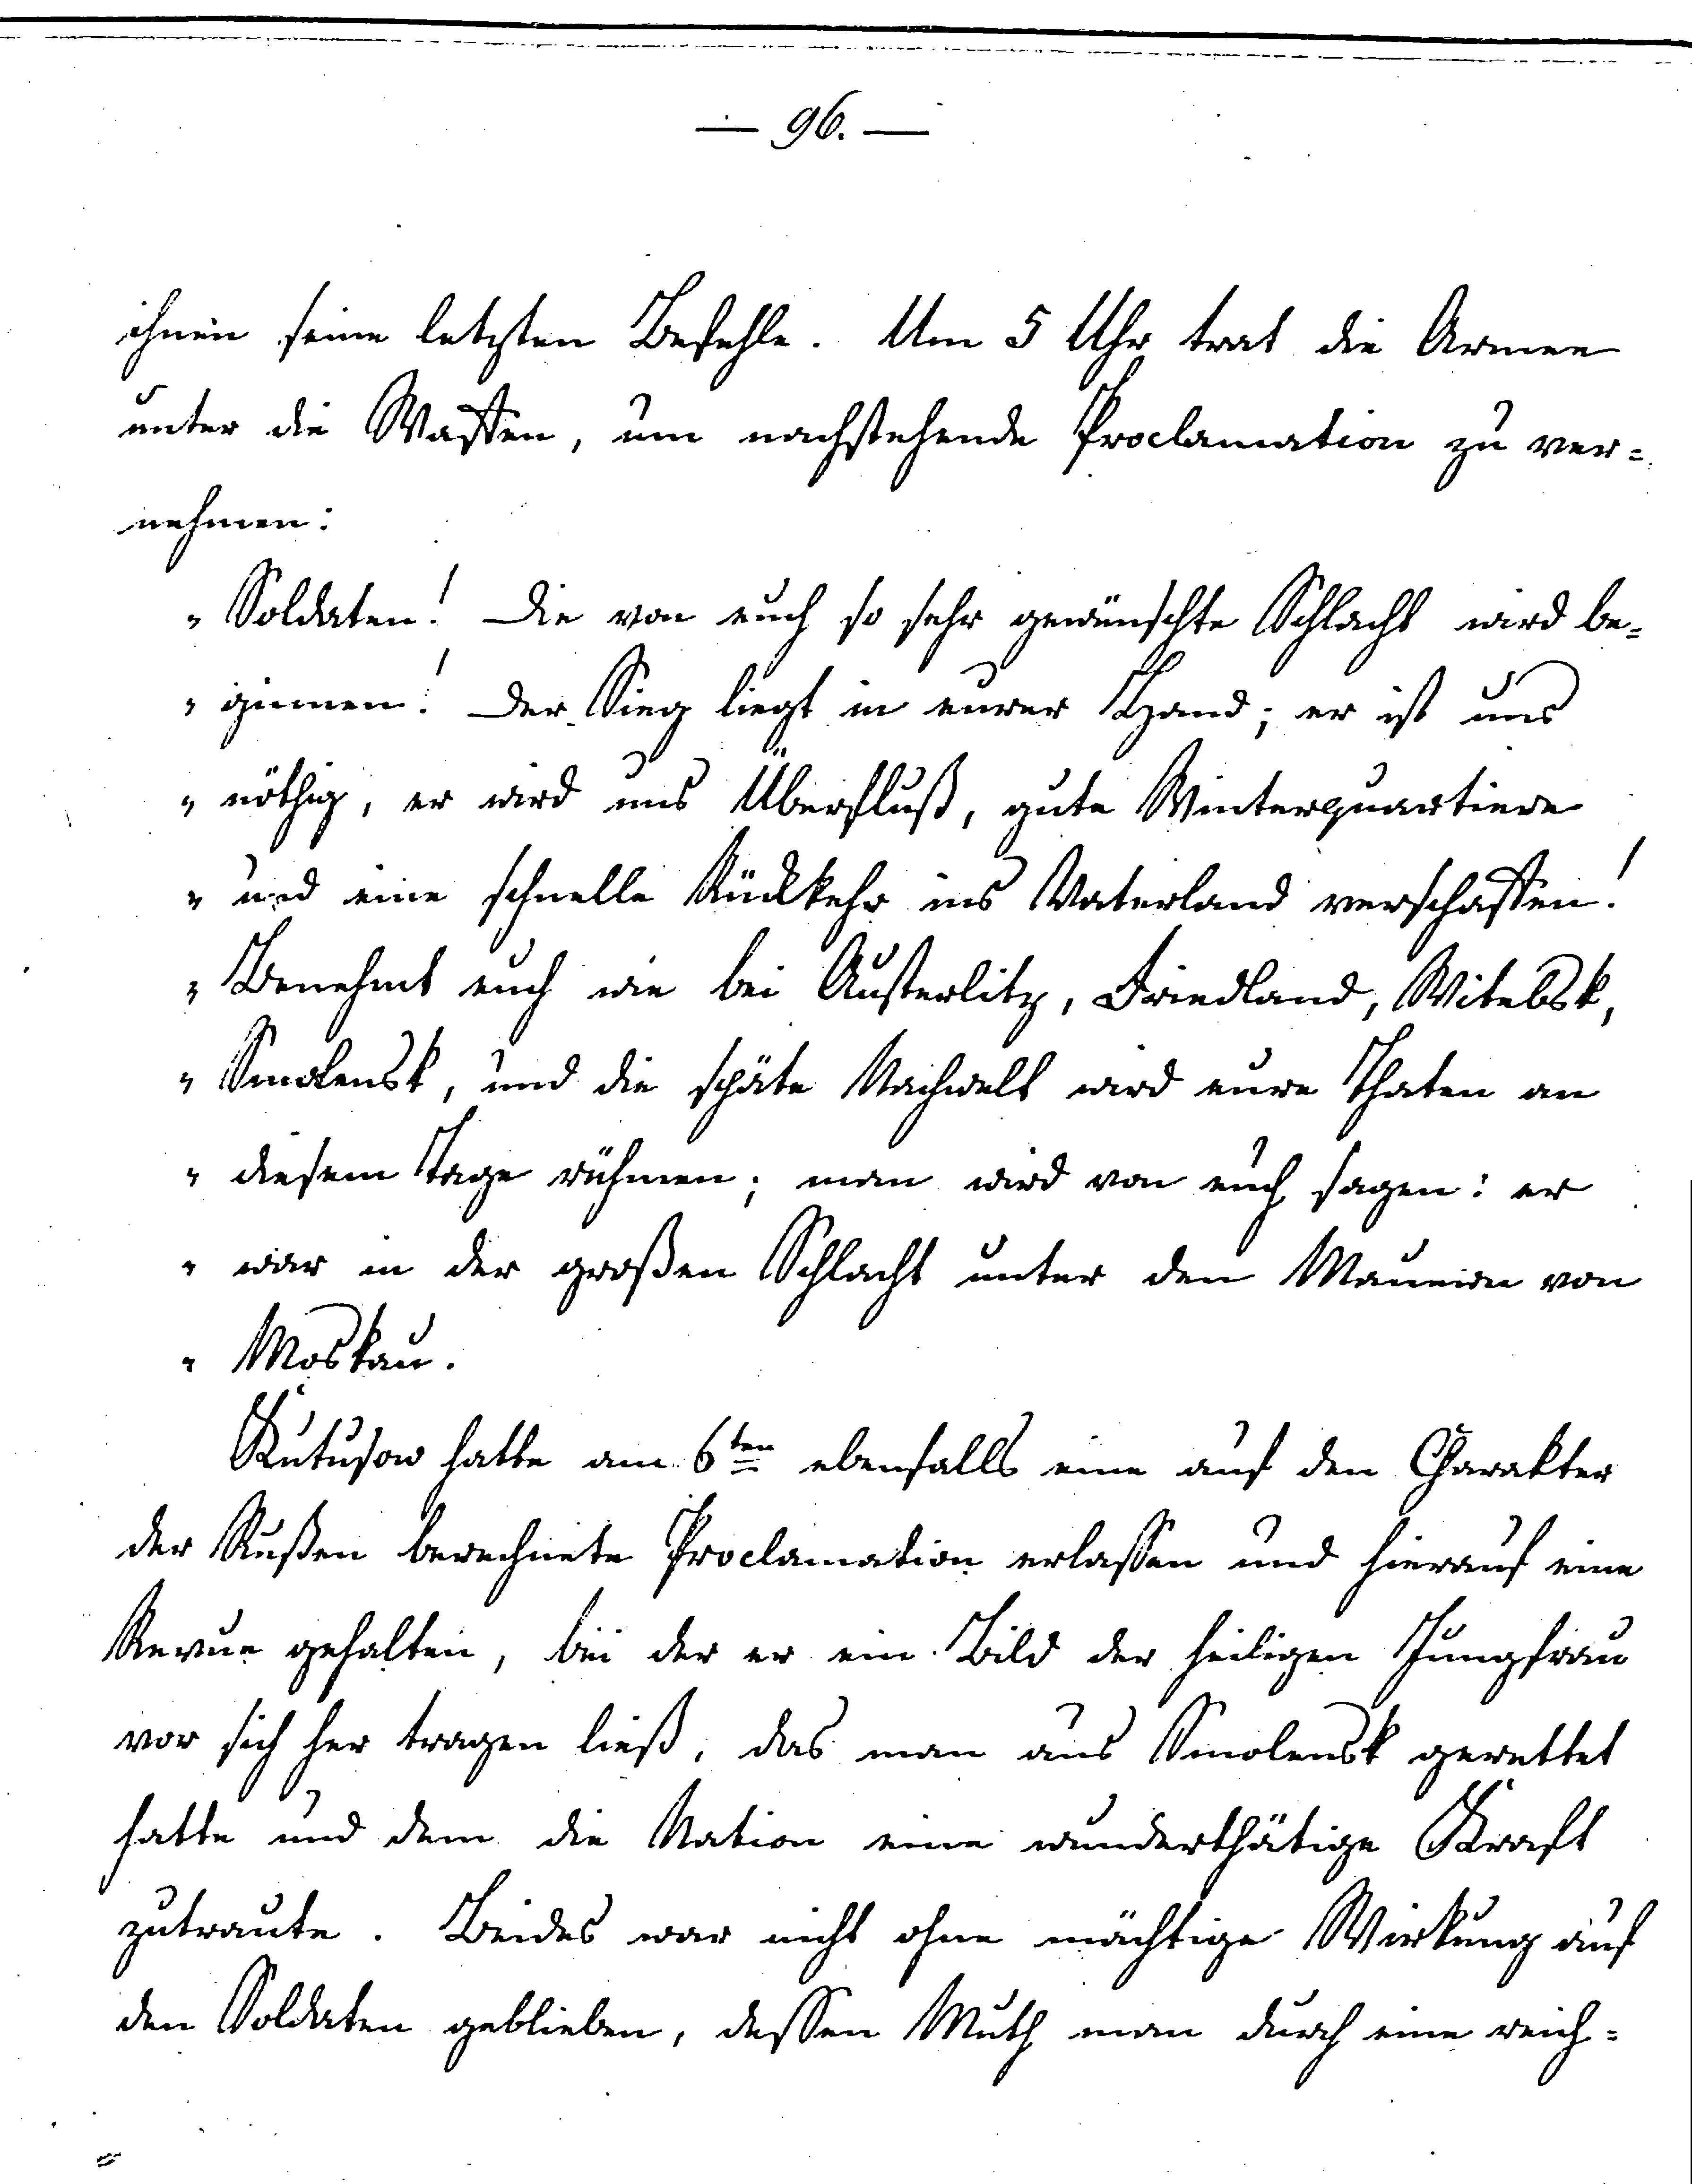 — 96. —
ihnen seine letzten Befehle. Um 5 Uhr trat die Armee
unter die Waffen, um nachstehende Proclamation zu ver=
nehmen:
„ Soldaten! Die von euch so sehr gewünschte Schlacht wird be=
„ ginnen! Der Sieg liegt in eurer Hand; er ist uns
„ nöthig, er wird uns Überfluß, gute Winterquartiere
„ und eine schnelle Rückkehr ins Vaterland verschaffen!
„ Benehmt euch wie bei Austerlitz, Friedland, Witebsk,
„ Smolensk, und die späte Nachwelt wird eure Thaten an
„ diesem Tage rühmen; man wird von euch sagen: er
„ war in der großen Schlacht unter den Mauern von
„ Moskau.
Kutusow hatte am 6ten ebenfalls eine auf den Charakter
der Rußen berechnete Proclamation erlassen und hierauf eine
Revue gehalten, bei der er ein Bild der heiligen Jungfrau
vor sich her tragen ließ, das man aus Smolensk gerettet
hatte und dem die Nation eine wunderthätige Kraft
zutraute. Beides war nicht ohne mächtige Wirkung auf
den Soldaten geblieben, dessen Muth man durch eine reich=